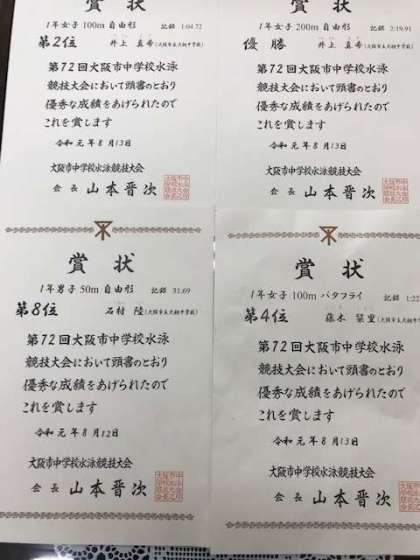 賞状
1年女子 100m 自由形 記録 1:04.72
第2位 井上 真希(大阪市立大桐中学校)
第72回大阪市中学校水泳
競技大会において頭書のとおり
優秀な成績をあげられたので
これを賞します
令和元年8月13日
大阪市中学校水泳競技大会
会長 山本晋次
賞状
1年女子 200m 自由形 記録 2:19.91
優勝 井上 真希(大阪市立大桐中学校)
第72回大阪市中学校水泳
競技大会において頭書のとおり
優秀な成績をあげられたので
これを賞します
令和元年8月13日
大阪市中学校水泳競技大会
会長 山本晋次
賞状
1年男子 50m 自由形 記録 31.69
第8位 石村 陸(大阪市立大桐中学校)
第72回大阪市中学校水泳
競技大会において頭書のとおり
優秀な成績をあげられたので
これを賞します
令和元年8月12日
大阪市中学校水泳競技大会
会長 山本晋次
賞状
1年女子 100m バタフライ 記録 1:22
第4位 藤木 栞里(大阪市立大桐中学校)
第72回大阪市中学校水泳
競技大会において頭書のとおり
優秀な成績をあげられたので
これを賞します
令和元年8月13日
大阪市中学校水泳競技大会
会長 山本晋次